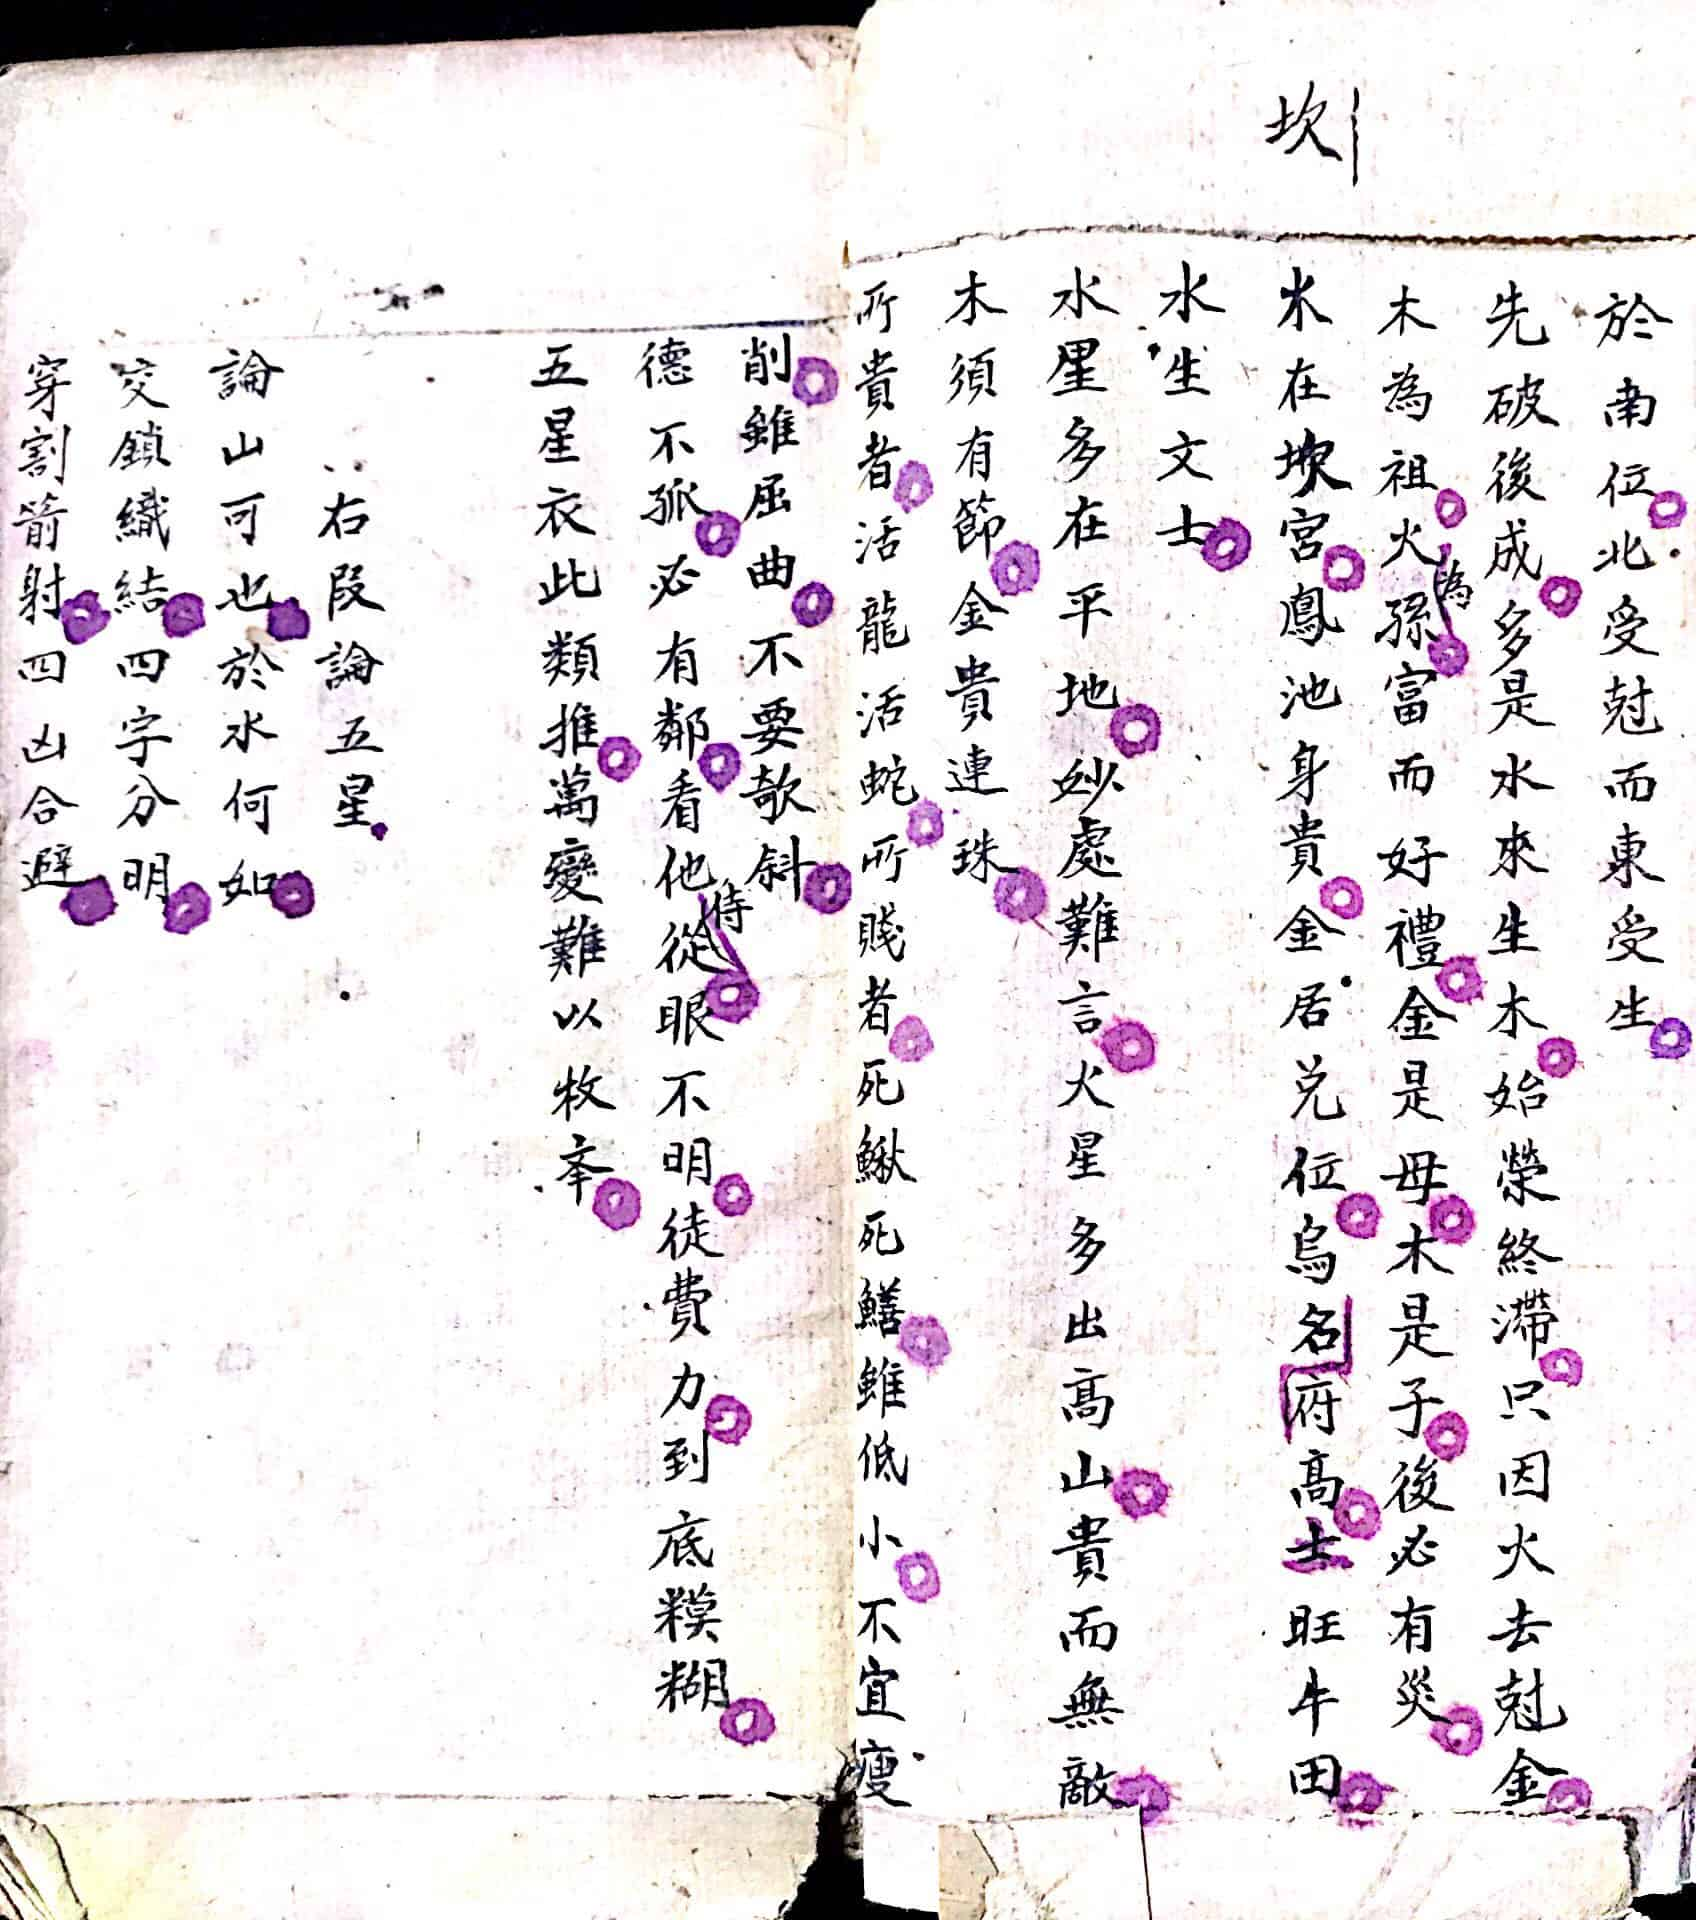 坎
於南位北受尅而東受生
先破後成多是水來生木始榮終滯只因火去尅金
木為祖火為孫富而好禮金是母木是子後必有災
木在坎宮鳳池身貴金居兌位烏府名高士旺牛田
水生文士
水星多在平地妙處難言火星多出高山貴而無敵
木須有節金貴連珠
所貴者活龍活蛇所賤者死鰍死鱔雖低小不宜瘦
削雖屈曲不要欹斜
德不孤必有鄰看他侍從眼不明徒費力到底糢糊
五星衣此類推萬變難以枚夅
右段論五星
論山可也於水何如
交鎖織結四字分明
穿割箭射四凶合避